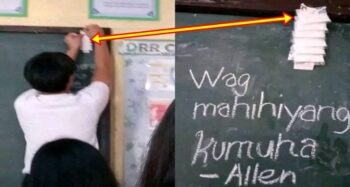 DRR C
Wag
mahihiyang
kumuha
- Allen